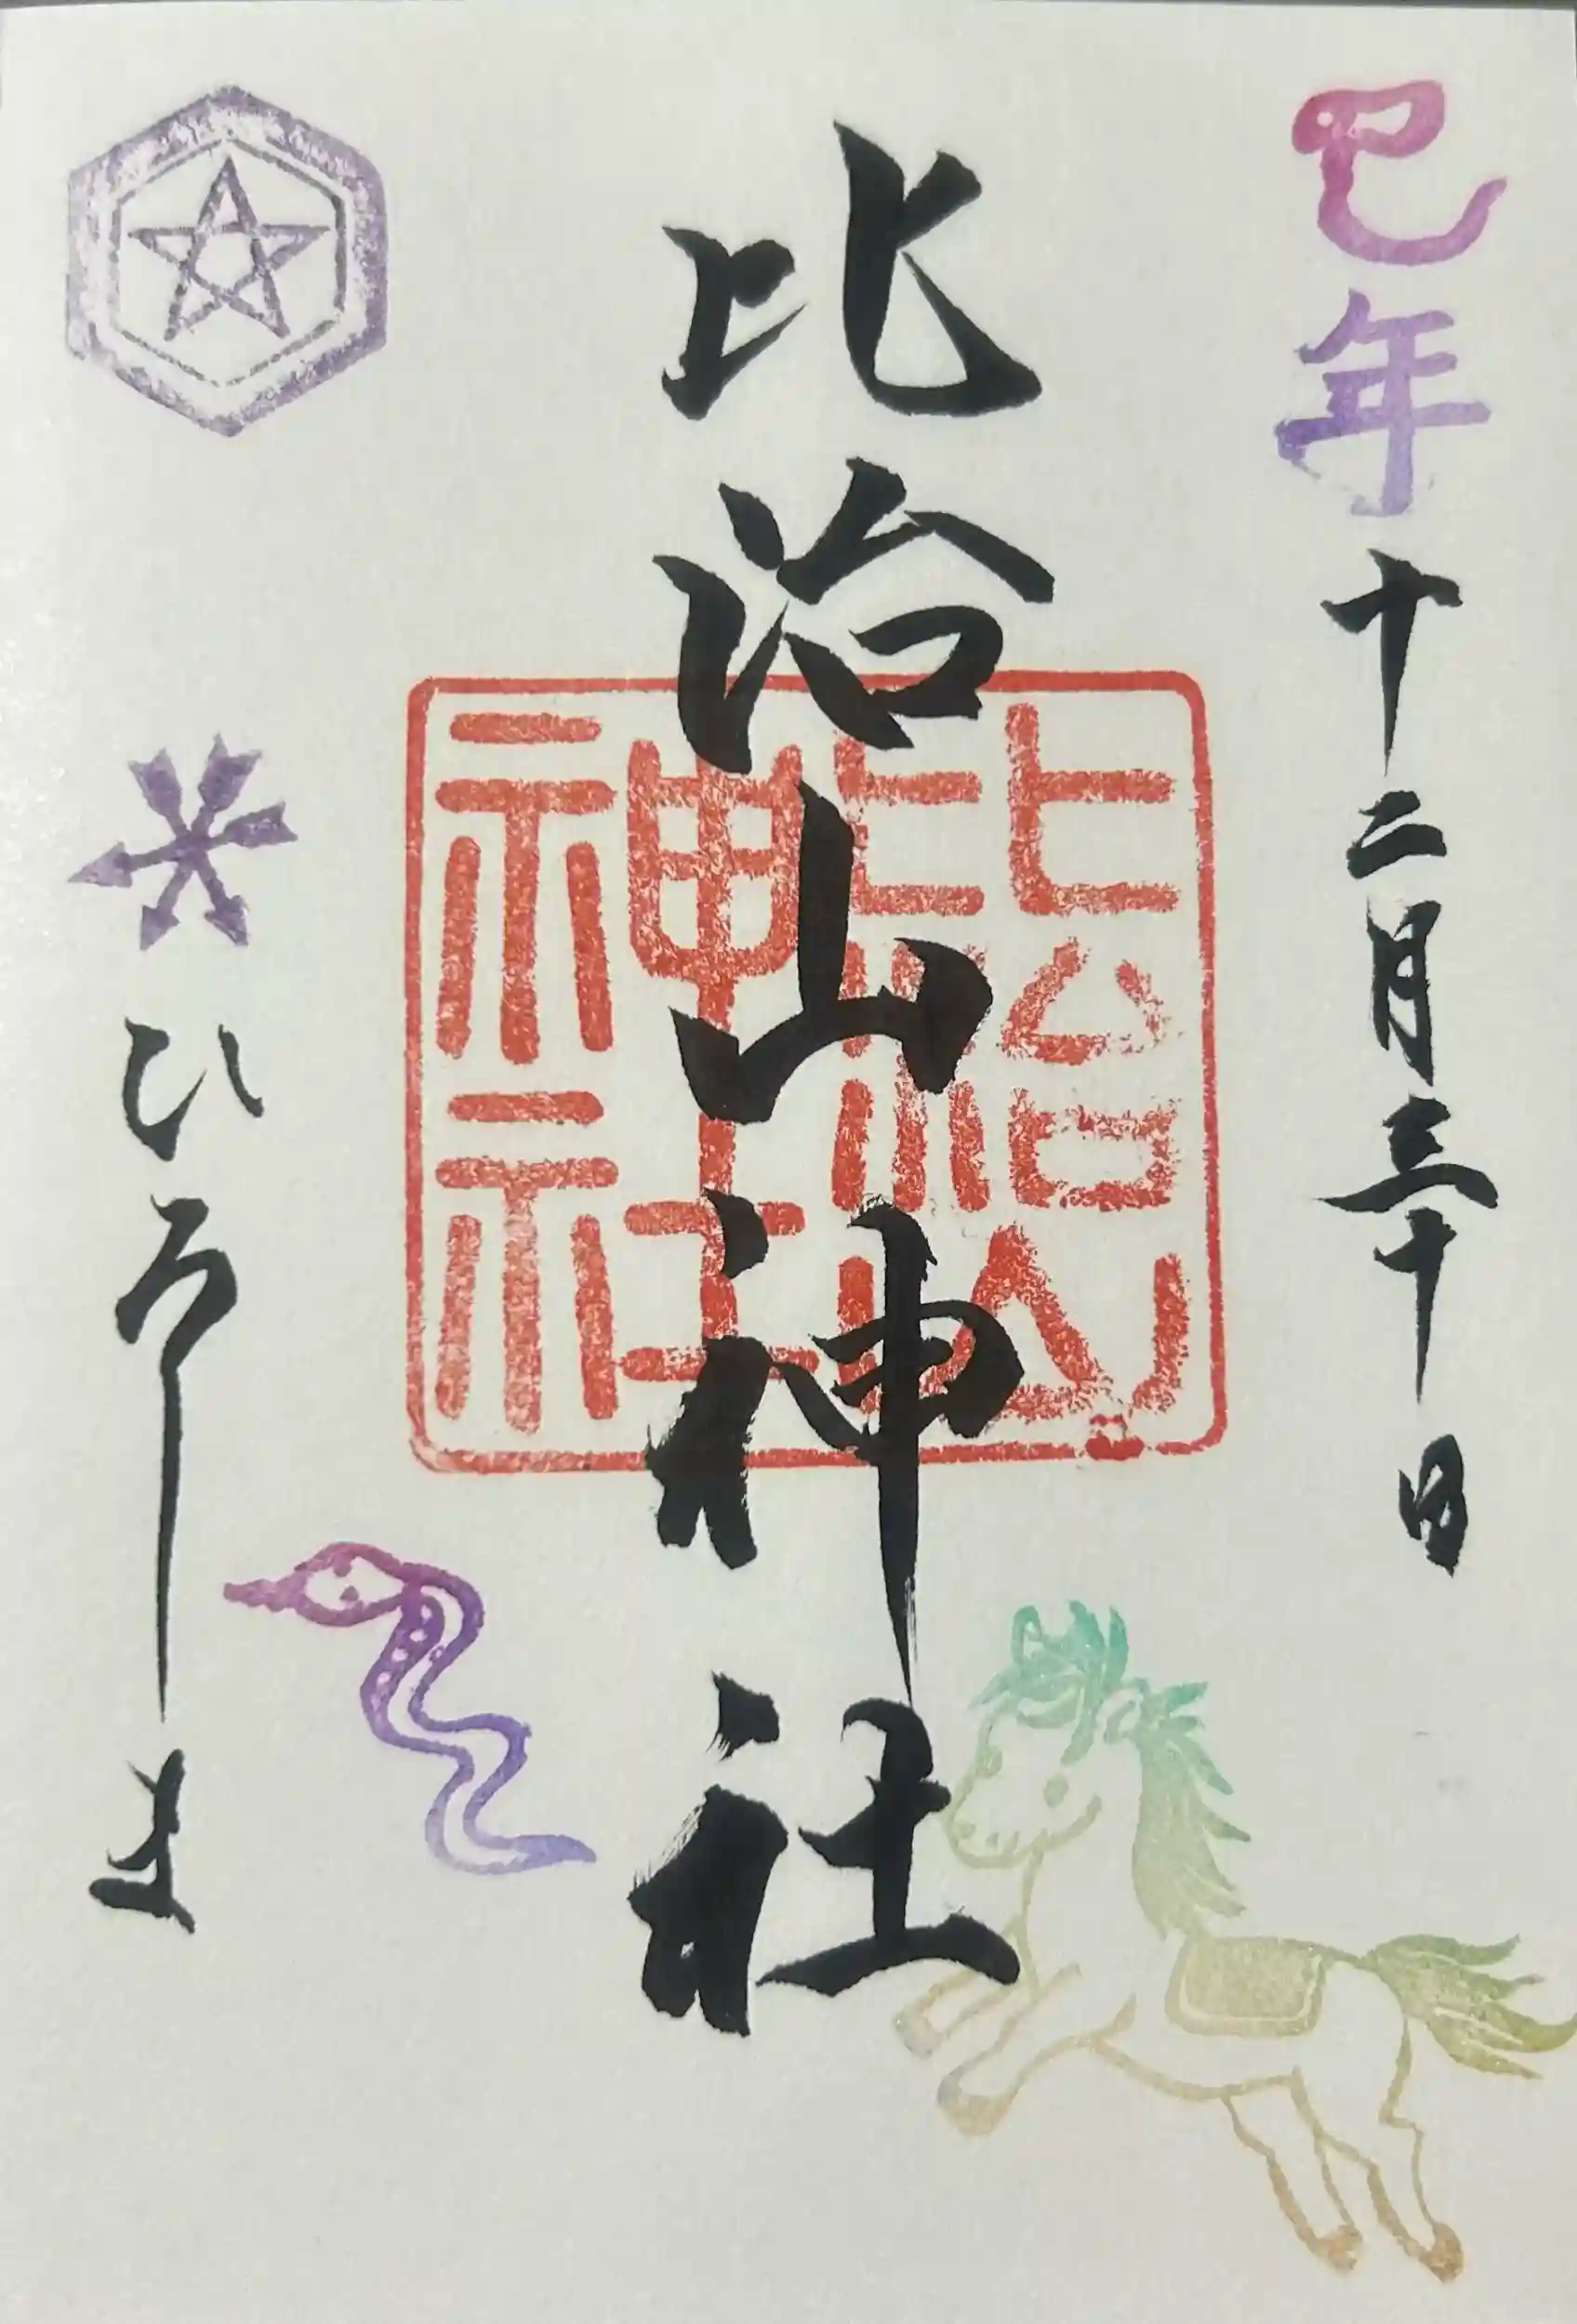 巳年十二月三十日
比治山神社
比治山神社
ひろしま